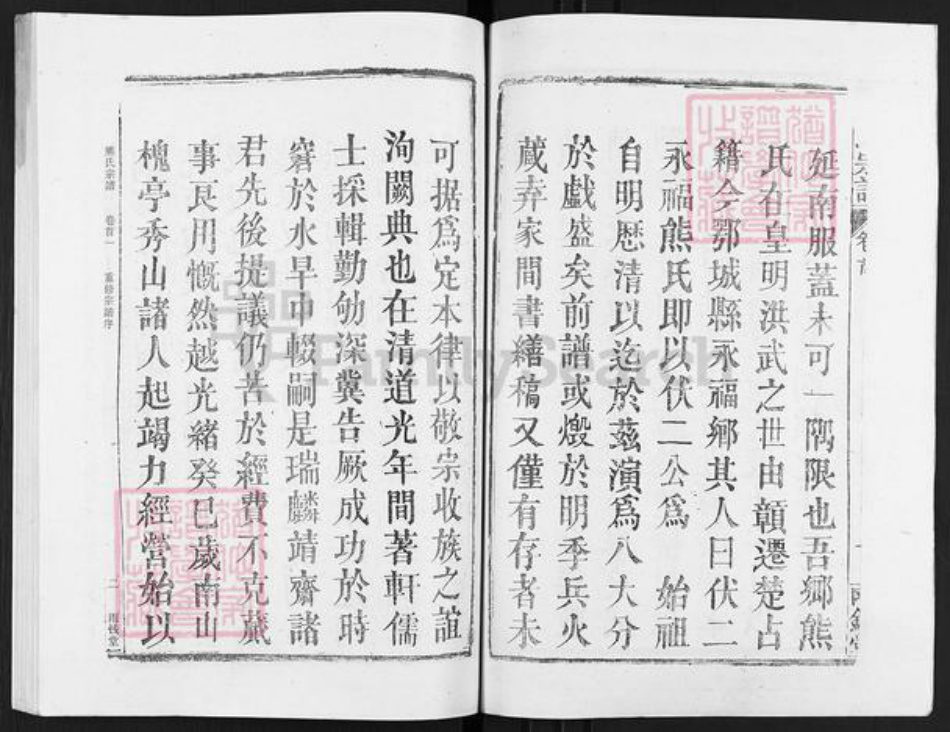 延南服蓋未可一隅限也吾鄉熊
氏在皇明洪武之世由贛遷楚占
籍今鄂城縣永福鄉其人曰伏二
永福熊氏即以伏二公為 始祖
自明歷清以迄於茲演為八大分
於戲盛矣前譜或燬於明季兵火
蔵弆家間書繕稿又僅有存者未
可据為定本律以敬宗收族之誼
洵闕典也在清道光年間著軒儒
士採輯勤劬深冀告厥成功於時
窘於水旱中輟嗣是瑞麟靖齋諸
君先後提議仍苦於經費不克蕆
事良用慨然越光緒癸巳歲南山
槐亭秀山諸人起竭力經營始以
熊氏宗譜 卷首一 重修宗譜序 二 雨錢堂
FamilySearch